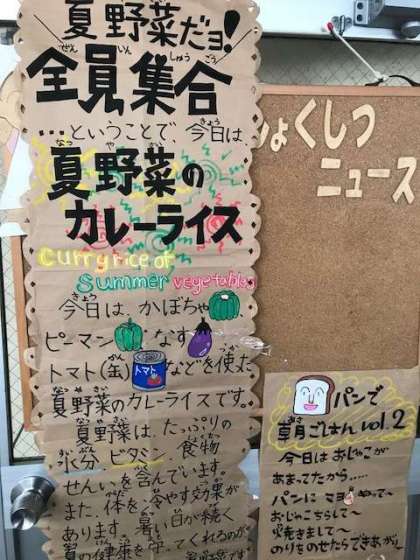 夏野菜だヨ!
ぜんいんしゅうごう
全員集合
…ということで、今日は、
きょう
なつやさい
夏野菜の
カレーライス
curry rice of
summer vegetables
きょう
今日は、かぼちゃ
ピーマン なす
トマト(缶) トマト などを使った
かん つか
なつやさい
夏野菜のカレーライスです。
夏野菜は、たっぷりの
水分、ビタミン、食物
せんいを含んでいます。
また、体を冷やす効果が
あります。暑い日が続く
夏の健康を守ってくれるのが
ょくしつ
ニュース
パンで
朝ごはん vol.2
今日はおじゃこが
あまってたから……
パンにマヨぬって〜
おじゃこちらして〜
焼きまして〜
のりをのせたらできあが